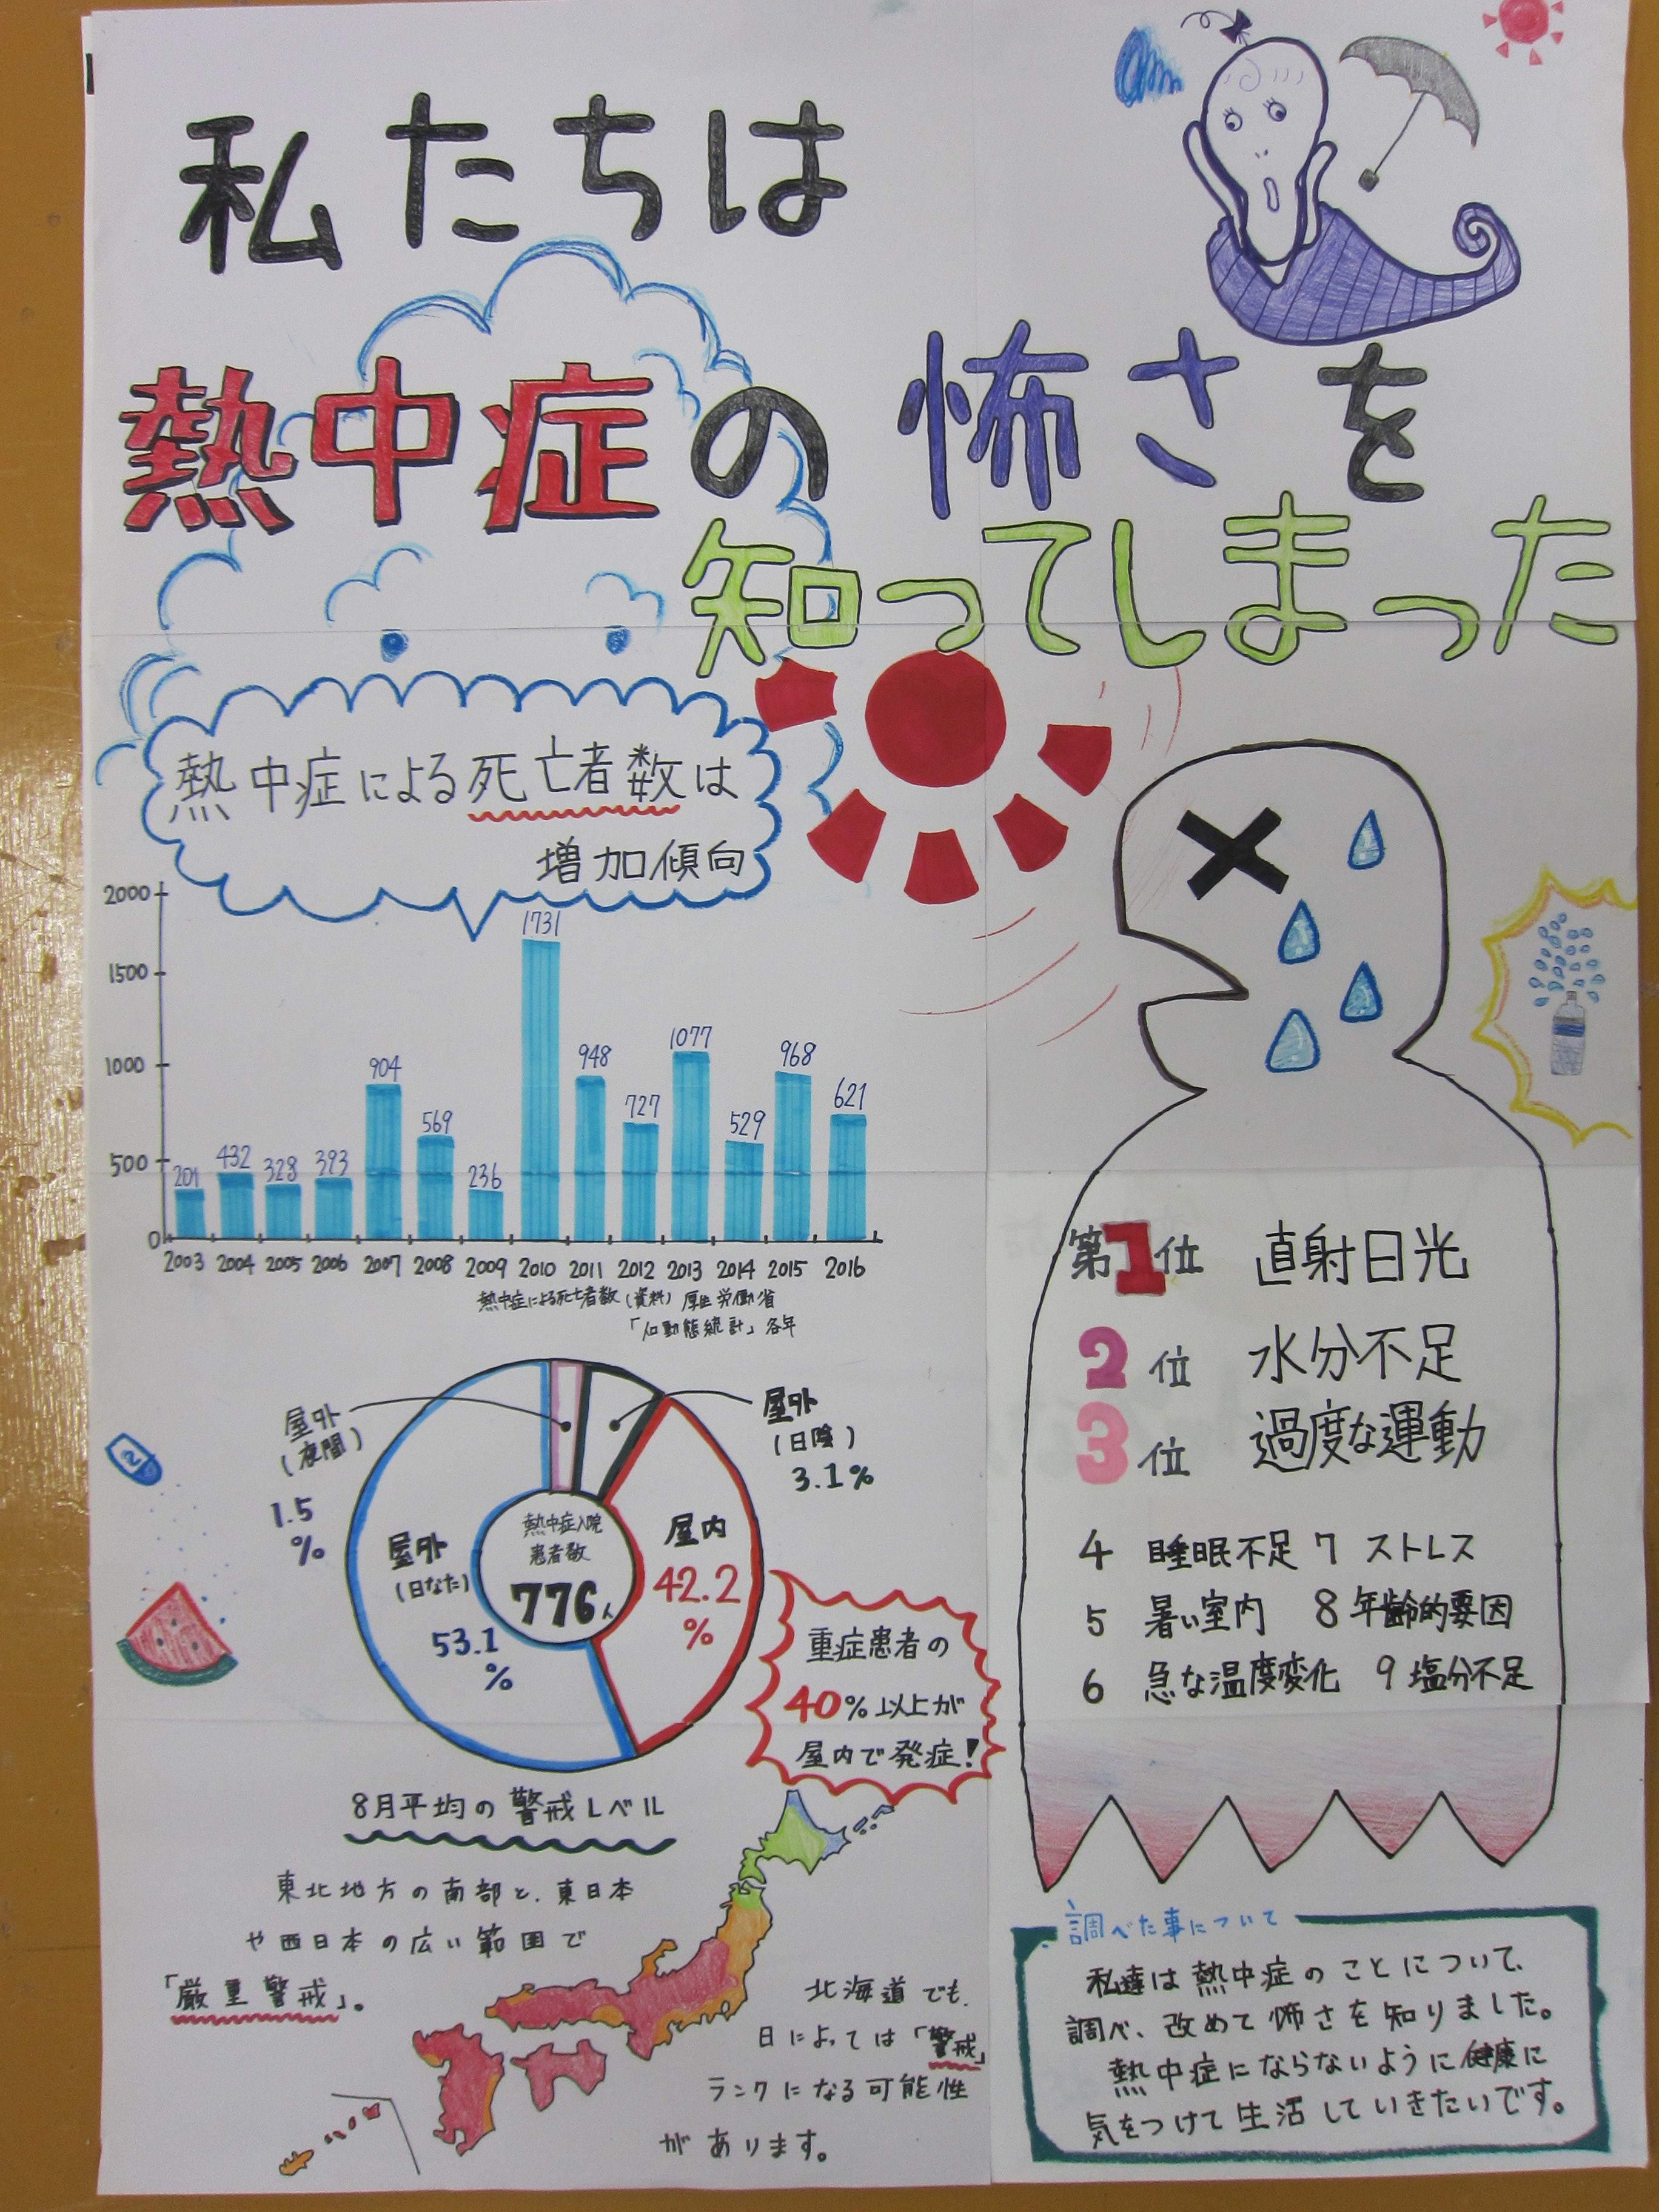 私たちは
熱中症の怖さを
知ってしまった
熱中症による死亡者数は
増加傾向
2000
1500
1000
500
0
201
432
328
393
904
569
236
1731
948
727
1077
529
968
621
2003 2004 2005 2006 2007 2008 2009 2010 2011 2012 2013 2014 2015 2016
熱中症による死亡者数(資料)厚生労働省
態統計」各年
屋外
(夜間)
1.5
%
屋外
(日陰)
3.1%
屋外
(日なた)
53.1
%
熱中症入院
患者数
776人
屋内
42.2
%
重症患者の
40%以上が
屋内で発症!
2
8月平均の警戒レベル
東北地方の南部と、東日本
や西日本の広い範囲で
「厳重警戒」。
北海道でも、
日によっては「警戒」
ランクになる可能性
があります。
第1位 直射日光
2位 水分不足
3位 過度な運動
4 睡眠不足 7 ストレス
5 暑い室内 8 年齢的要因
6 急な温度変化 9 塩分不足
調べた事について
私達は熱中症のことについて、
調べ、改めて怖さを知りました。
熱中症にならないように健康に
気をつけて生活していきたいです。